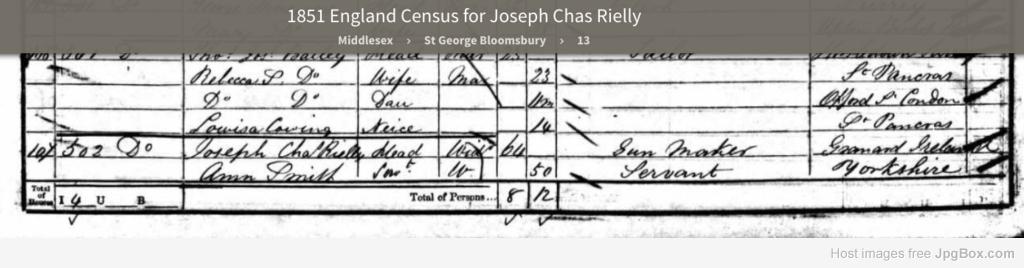 1851 England Census for Joseph Chas Rielly
Middlesex › St George Bloomsbury › 13
Bailey Head
Rebecca S. Do Wife Mar 23 St Pancras
Do Do Dau 4m Oxford St London
Louisa Neice 14 St Pancras
107 502 Do Joseph Chas Rielly Head Widr 64 Gun Maker Granard Ireland
Ann Smith Servt W 50 Servant Yorkshire
Total of Houses I 4 U B Total of Persons... 8 12
Host images free JpgBox.com